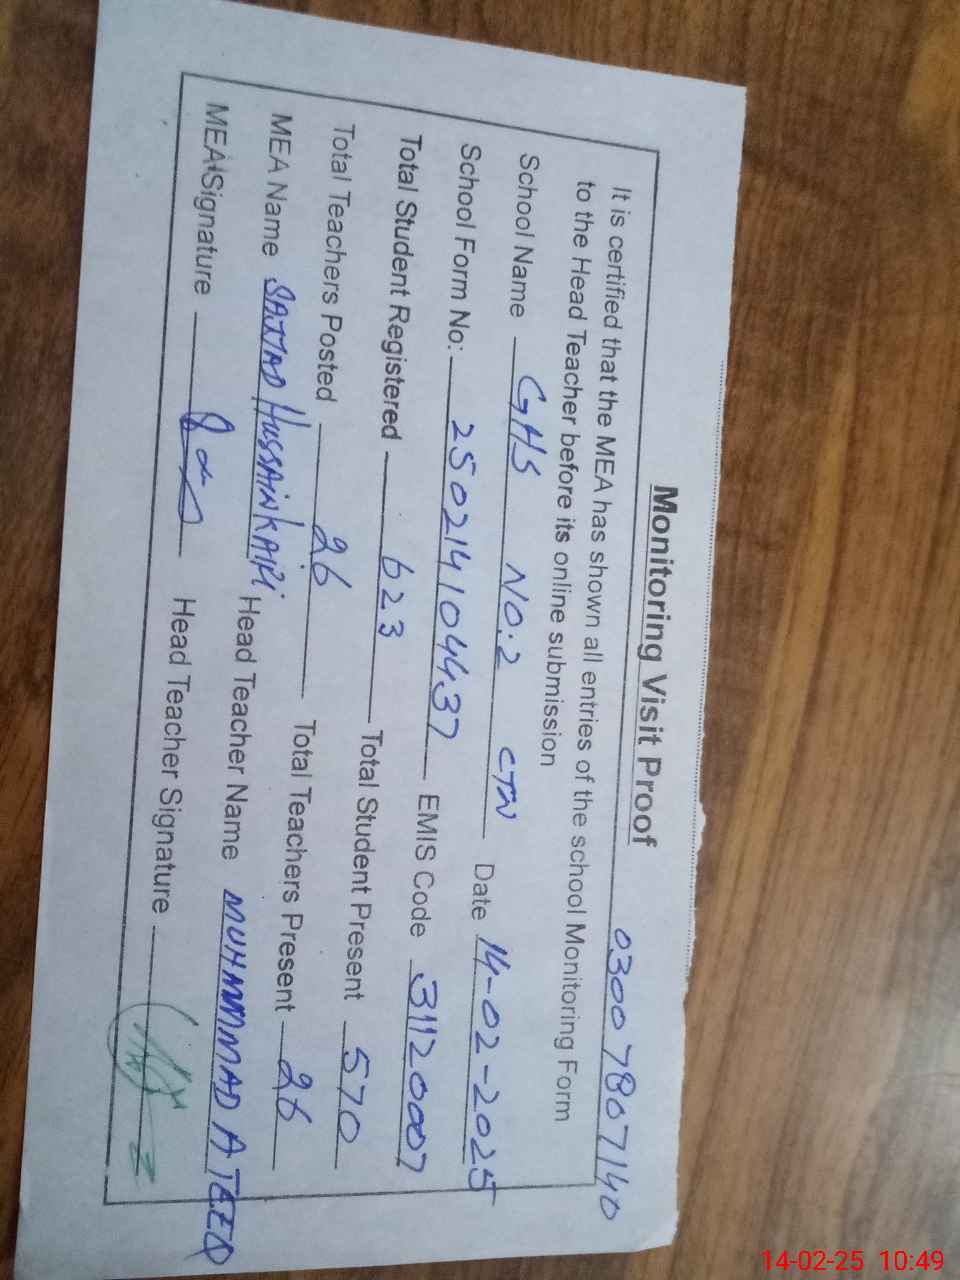 Monitoring Visit Proof 0300 7867140
It is certified that the MEA has shown all entries of the school Monitoring Form
to the Head Teacher before its online submission
School Name GHS NO:2 CTN Date 14-02-2025
School Form No: 250214104437 EMIS Code 31120007
Total Student Registered 623 Total Student Present 570
Total Teachers Posted 26 Total Teachers Present 26
MEA Name SAJJAD HUSSAIN Head Teacher Name MUHAMMAD ATEEQ
MEA Signature Head Teacher Signature
14-02-25 10:49